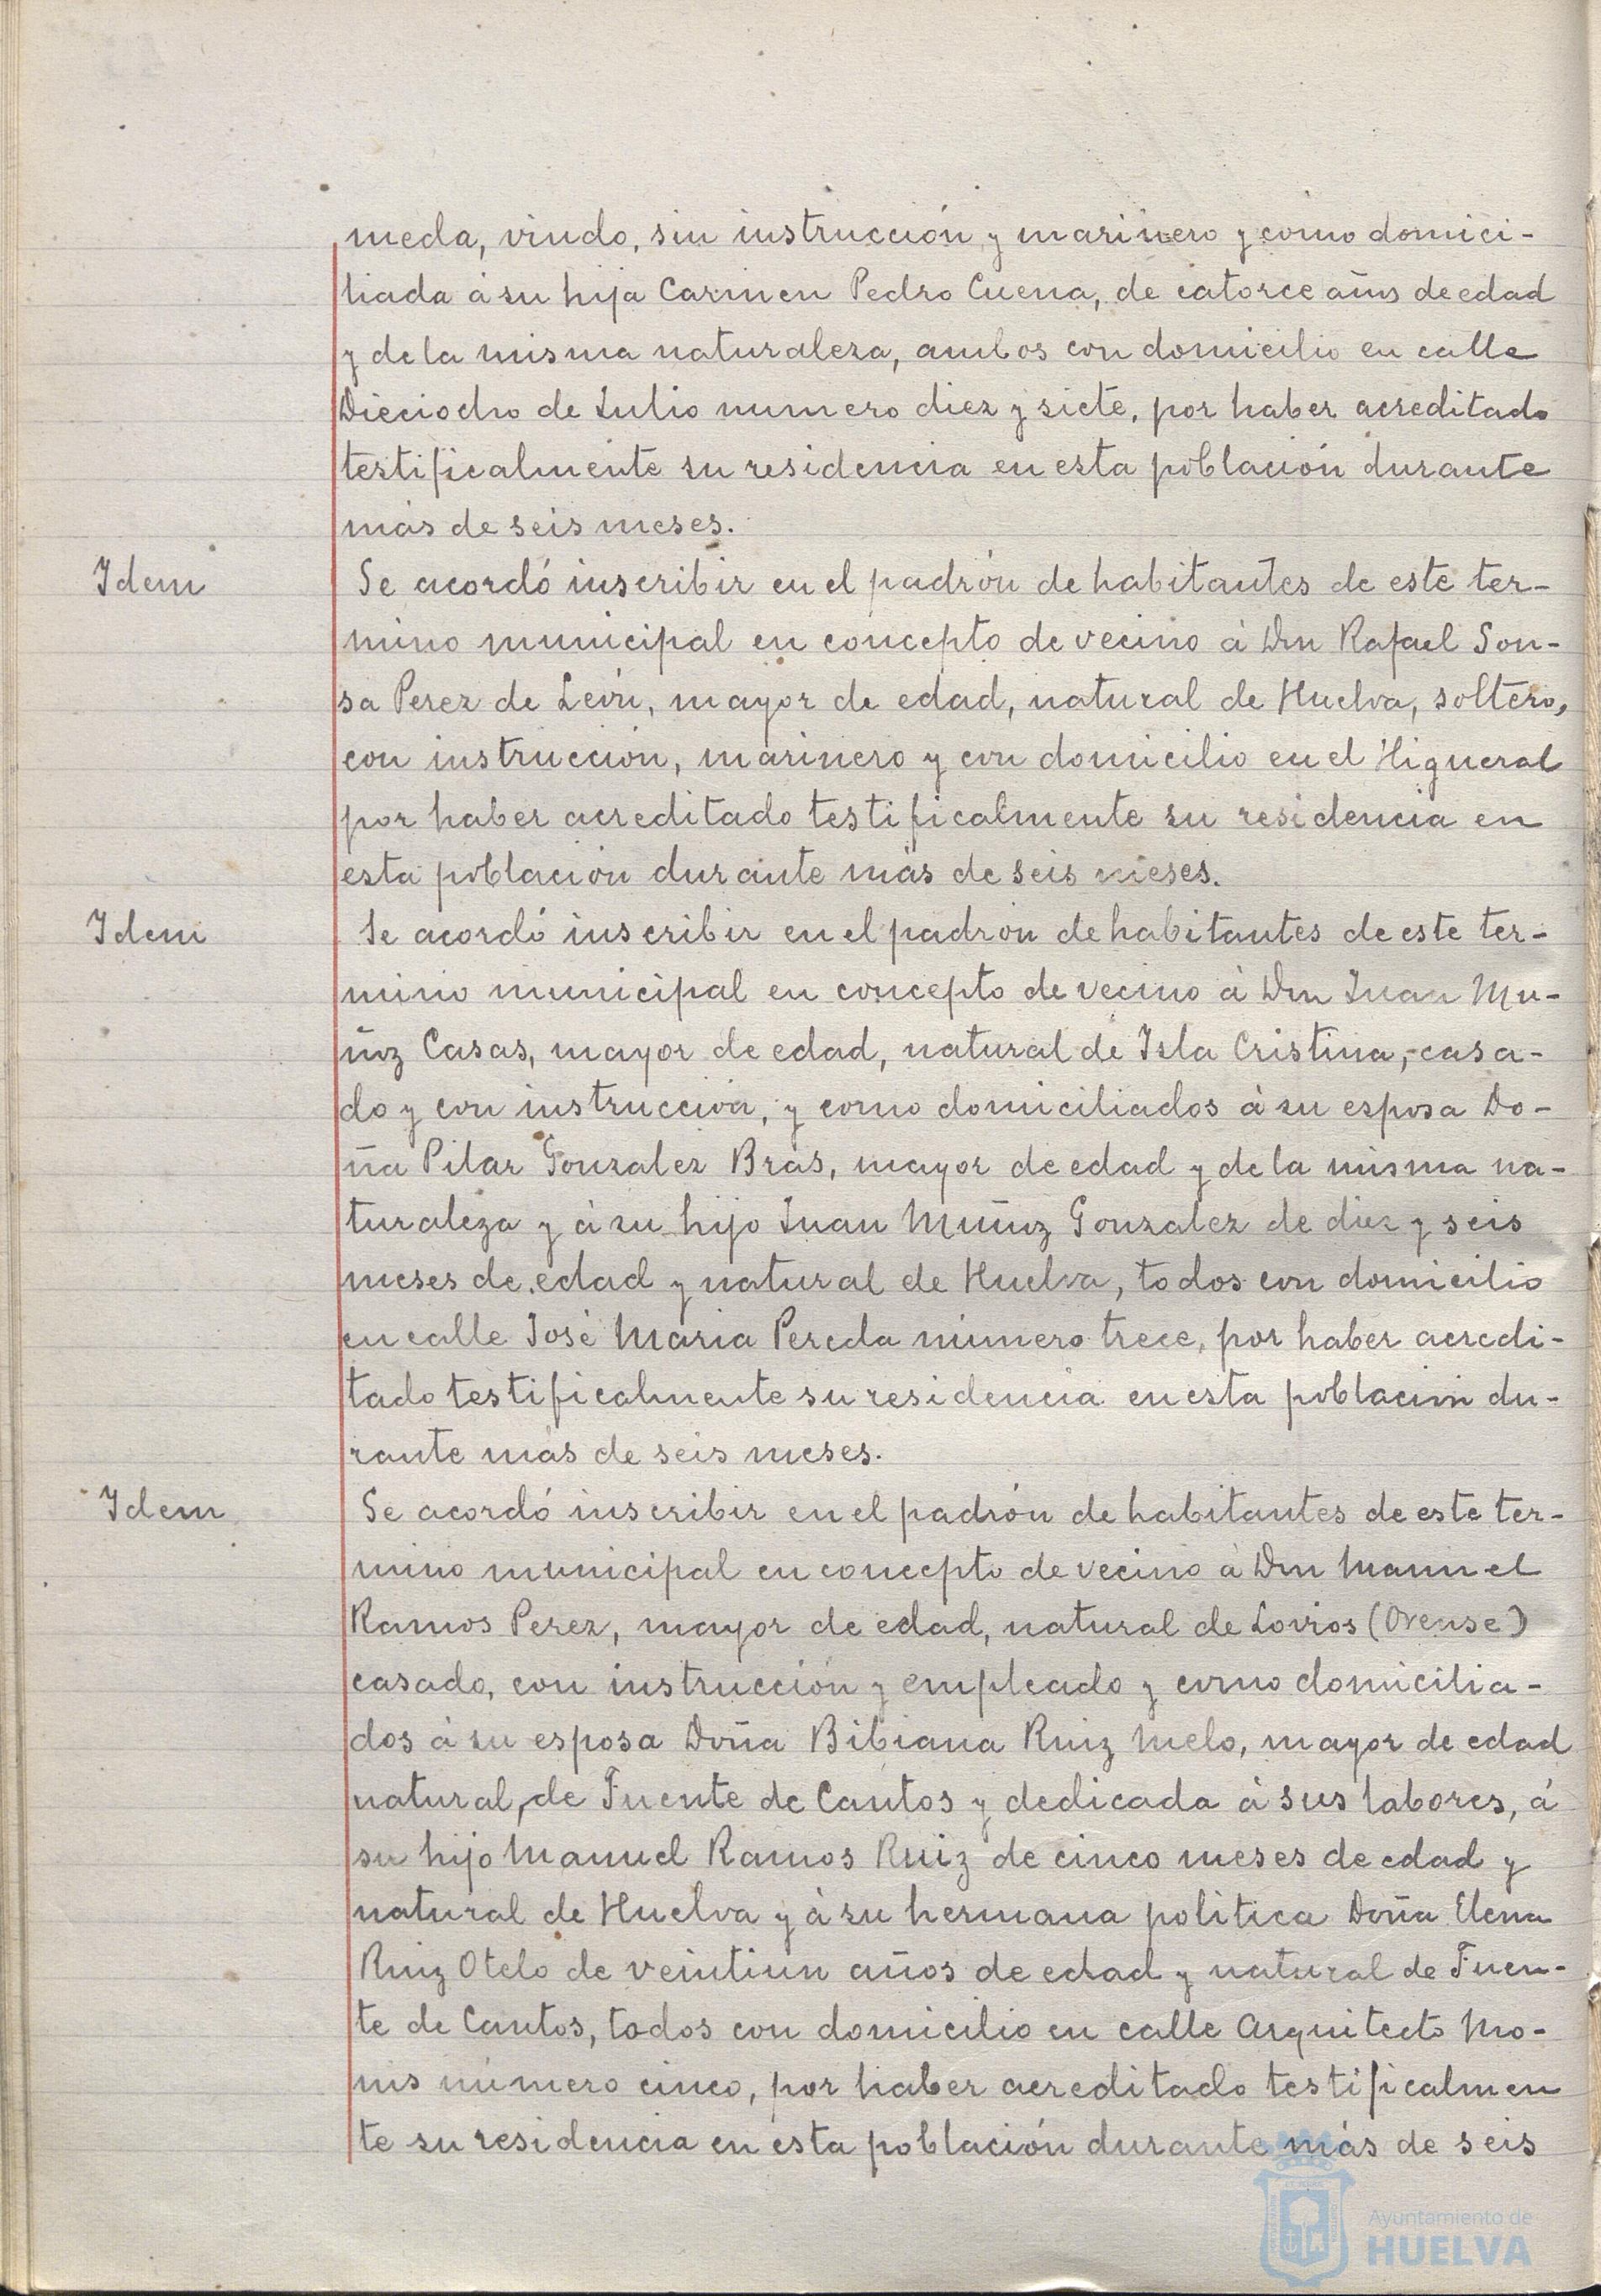 meda, viudo, sin instrucción y marinero y como domici-
liada á su hija Carmen Pedro Cuena, de catorce años de edad
y de la misma naturaleza, ambos con domicilio en calle
Dieciocho de Julio numero diez y siete, por haber acreditado
testificalmente su residencia en esta población durante
más de seis meses.
Idem
Se acordó inscribir en el padrón de habitantes de este ter-
mino municipal en concepto de vecino á Don Rafael Sou-
sa Perez de León, mayor de edad, natural de Huelva, soltero,
con instrucción, marinero y con domicilio en el Higueral
por haber acreditado testificalmente su residencia en
esta población durante más de seis meses.
Idem
Se acordó inscribir en el padrón de habitantes de este ter-
mino municipal en concepto de vecino á Don Juan Mu-
ñoz Casas, mayor de edad, natural de Isla Cristina, casa-
do y con instrucción, y como domiciliados á su esposa Do-
ña Pilar Gonzalez Bras, mayor de edad y de la misma na-
turaleza y á su hijo Juan Muñoz Gonzalez de diez y seis
meses de edad y natural de Huelva, todos con domicilio
en calle José Maria Pereda número trece, por haber acredi-
tado testificalmente su residencia en esta población du-
rante más de seis meses.
Idem
Se acordó inscribir en el padrón de habitantes de este ter-
mino municipal en concepto de vecino á Don Manuel
Ramos Perez, mayor de edad, natural de Lovios (Orense)
casado, con instrucción y empleado y como domicilia-
dos á su esposa Doña Bibiana Ruiz Melo, mayor de edad
natural, de Fuente de Cantos y dedicada á sus labores, á
su hijo Manuel Ramos Ruiz de cinco meses de edad y
natural de Huelva y á su hermana política Doña Elena
Ruiz Otelo de veintiun años de edad y natural de Fuen-
te de Cantos, todos con domicilio en calle Arquitecto Mo-
nis número cinco, por haber acreditado testificalmen
te su residencia en esta población durante más de seis
Ayuntamiento de
HUELVA